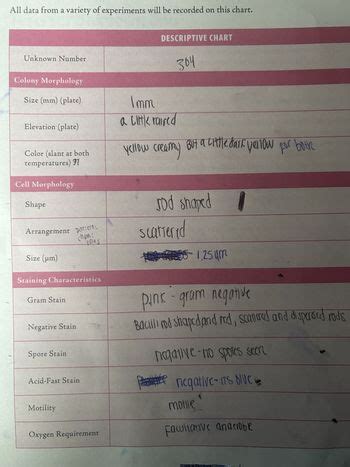 All data from a variety of experiments will be recorded on this chart.
DESCRIPTIVE CHART
Unknown Number 304
Colony Morphology
Size (mm) (plate) 1mm
Elevation (plate) a little raised
Color (slant at both yellow creamy but a little dark yellow for both
temperatures)
Cell Morphology
Shape rod shaped
Arrangement scattered
Size (µm) 1.25 µm
Staining Characteristics
Gram Stain pink - gram negative
Negative Stain Bacilli rod shaped and red, scattered and dispersed rods
Spore Stain negative - no spores seen
Acid-Fast Stain negative - its blue
Motility motile
Oxygen Requirement anaerobe